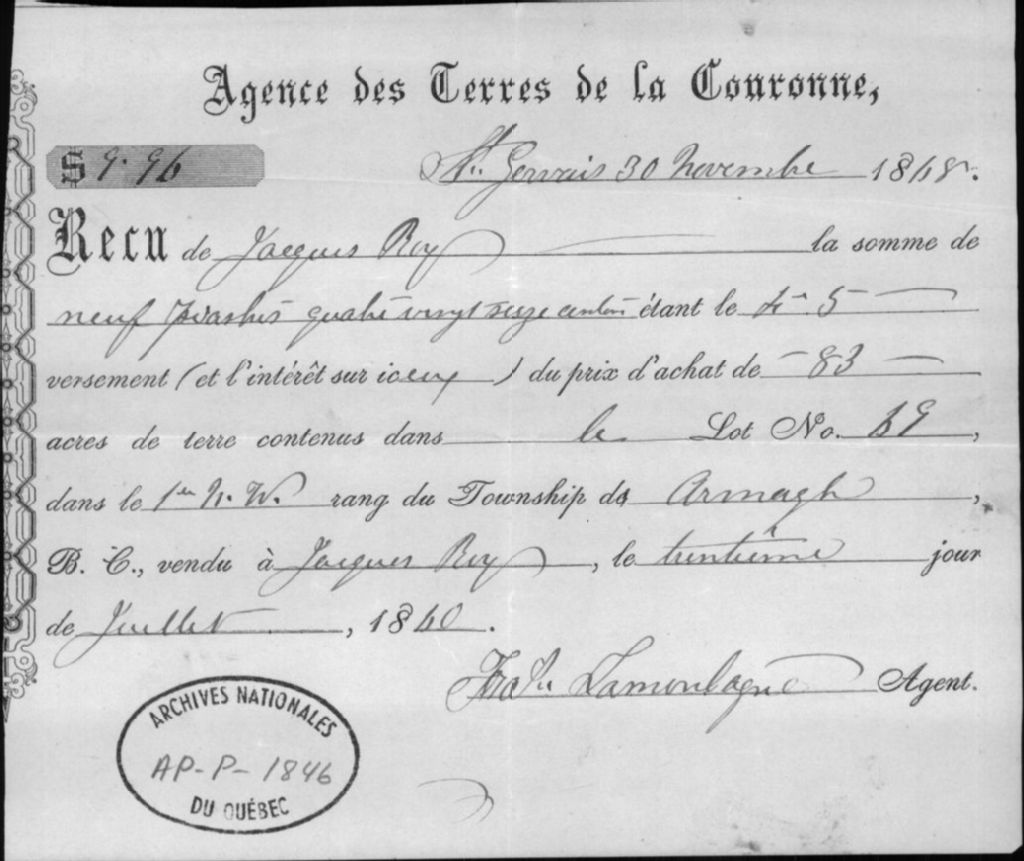 Agence des Terres de la Couronne,
$ 9.96
St. Gervais 30 Novembre 1868.
Recu de Jacques Roy la somme de
neuf piastres quatre vingt seize centins étant le 4me 5
versement (et l'intérêt sur iceux) du prix d'achat de 83
acres de terre contenus dans le Lot No. 19,
dans le 1er N. W. rang du Township de Armagh,
B. C., vendu à Jacques Roy, le trentième jour
de Juillet, 1860.
Lamontagne Agent.
ARCHIVES NATIONALES
AP-P-1846
DU QUÉBEC